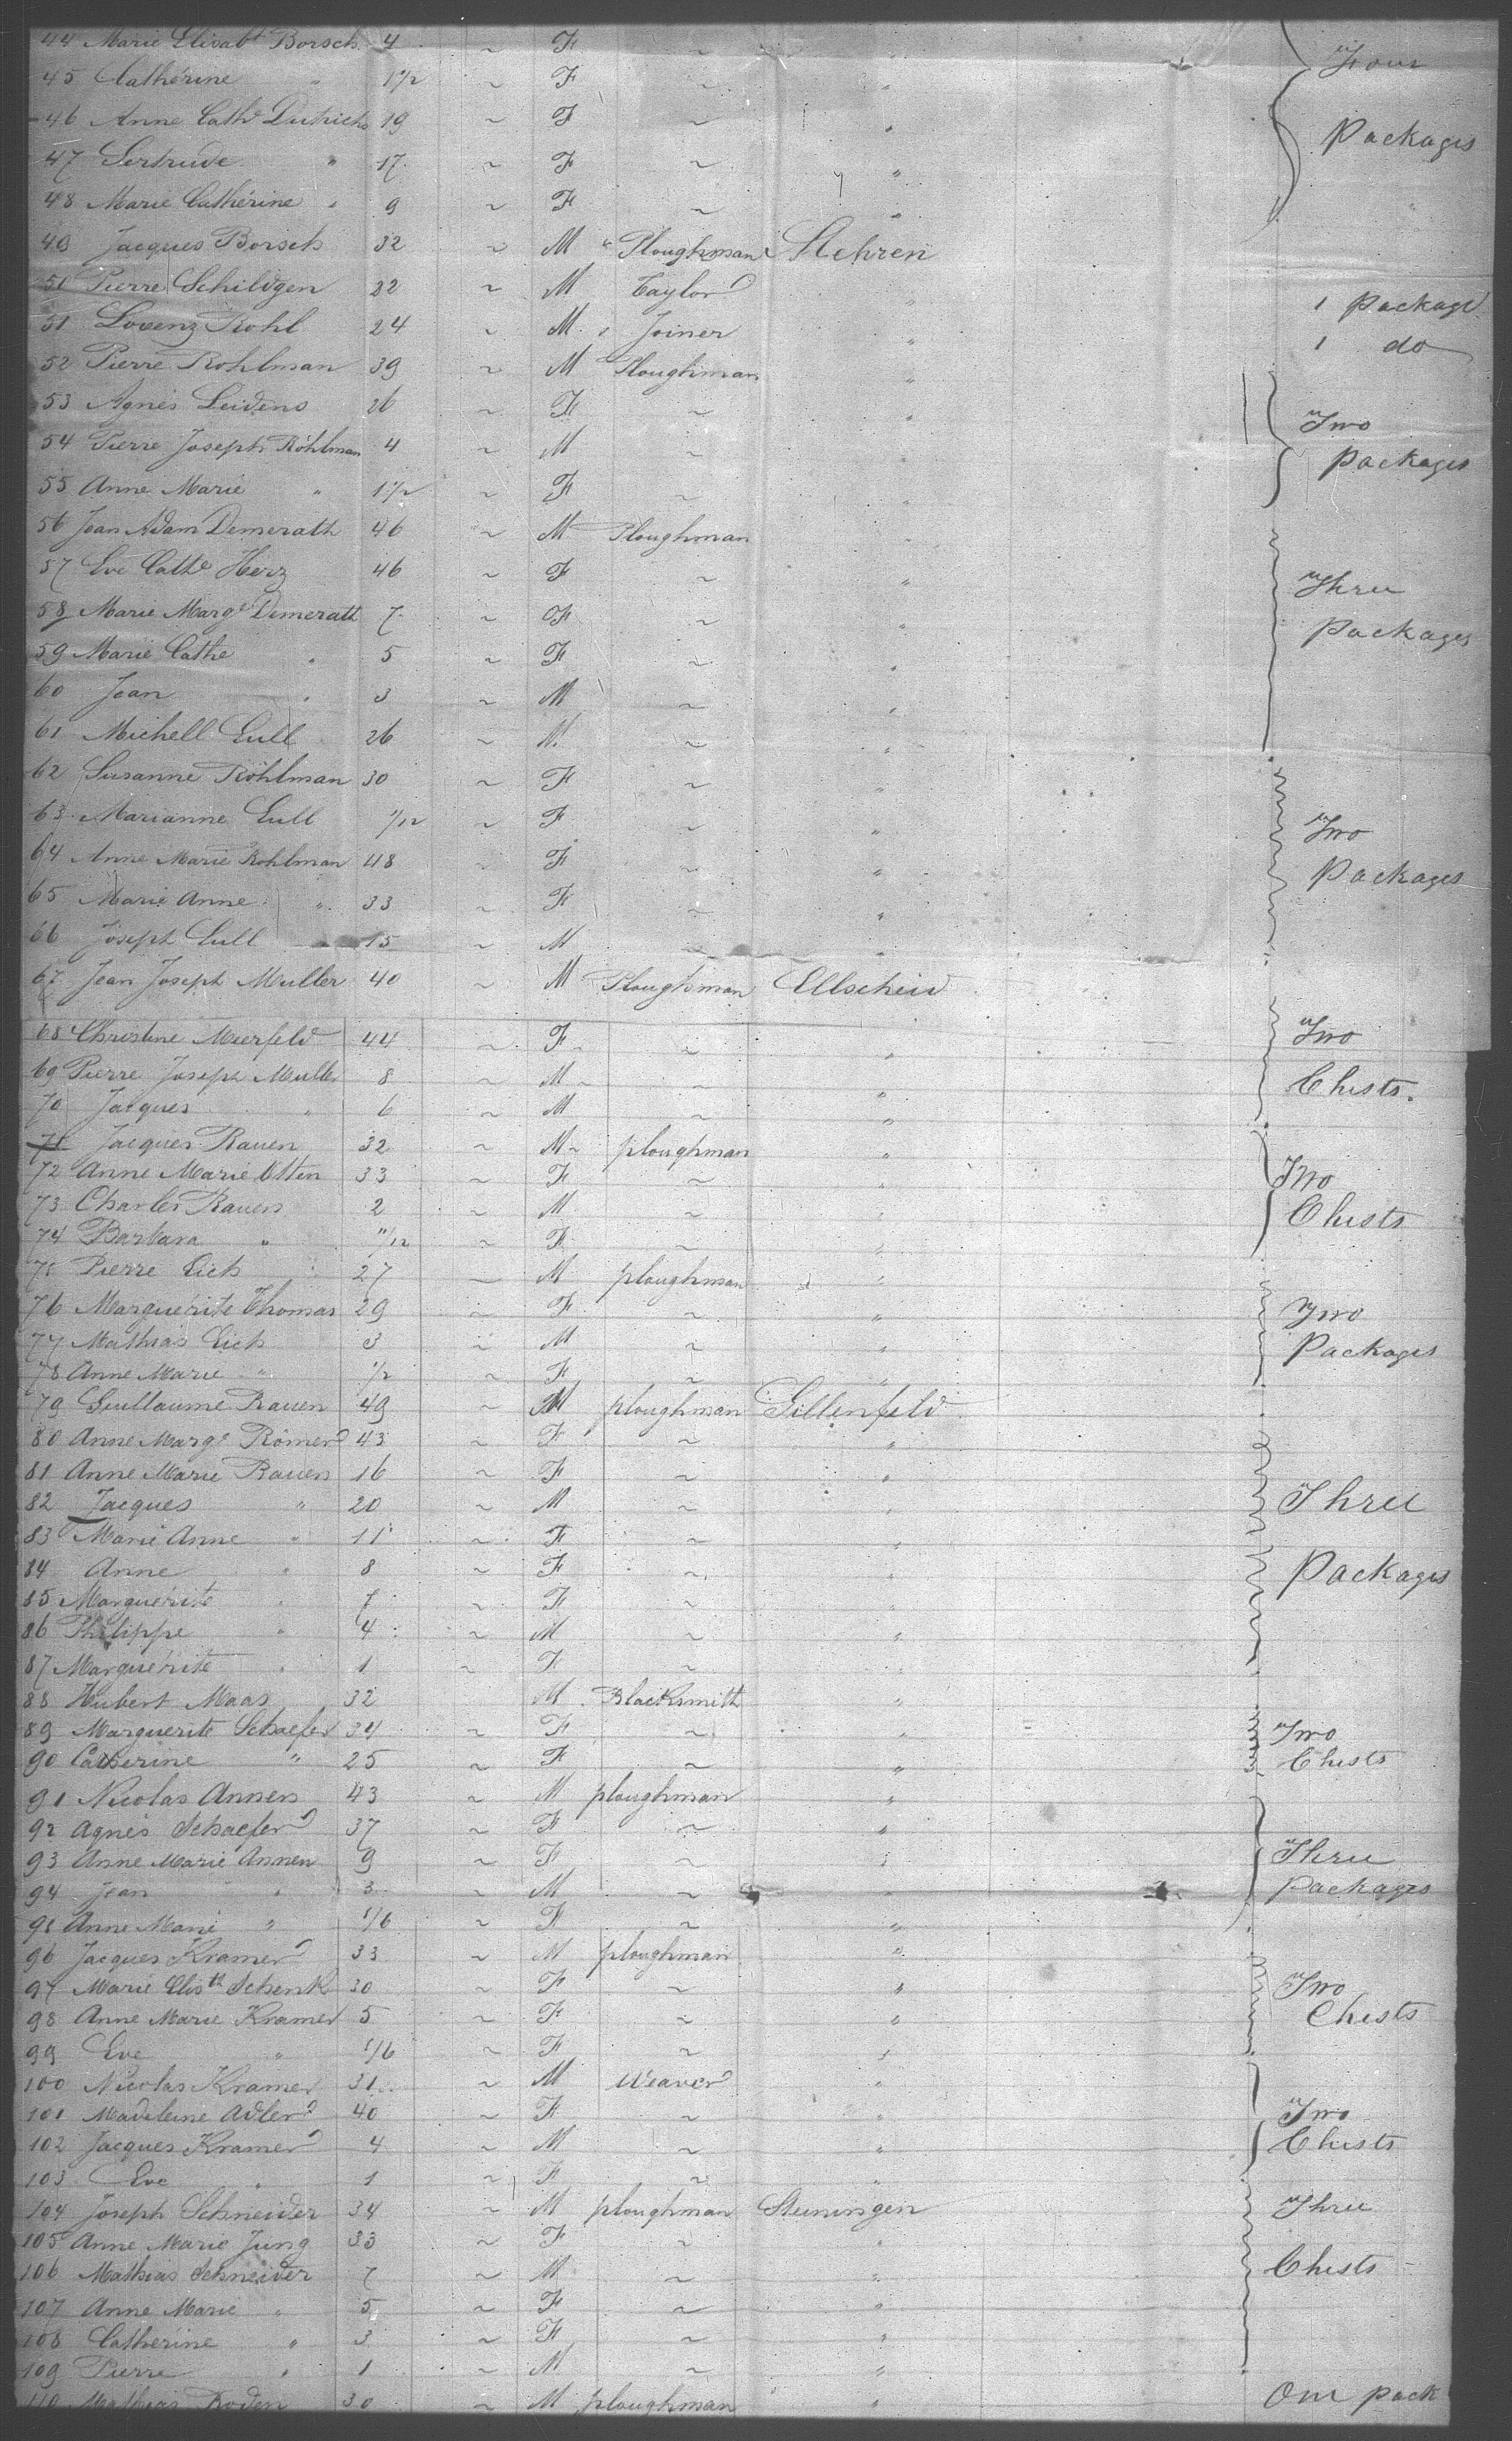 44 Marie Elisabt Borsch 4 ~ F ~ "
45 Cathérine " 1 1/2 ~ F ~ " Four
46 Anne Cathe Dutrichs 19 ~ F ~ " Packages
47 Gertrude " 17 ~ F ~ "
48 Marie Cathérine " 9 ~ F ~ "
49 Jacques Borsch 32 ~ M Ploughman Stehren
50 Pierre Schildgen 22 ~ M Taylor " 1 Package
51 Lorenz Rohl 24 ~ M Joiner " 1 do
52 Pierre Rohlman 39 ~ M Ploughman "
53 Agnes Leidens 26 ~ F ~ " Two
54 Pierre Joseph Röhlman 4 ~ M ~ " Packages
55 Anne Marie " 1 1/2 ~ F ~ "
56 Jean Adam Demerath 46 ~ M Ploughman "
57 Eve Cathe Herz 46 ~ F ~ " Three
58 Marie Marge Demerath 7 ~ F ~ " Packages
59 Marie Cathe " 5 ~ F ~ "
60 Jean " 3 ~ M ~ "
61 Michell Lull 26 ~ M ~ "
62 Susanne Röhlman 30 ~ F ~ "
63 Marianne Lull 1/12 ~ F ~ " Two
64 Anne Marie Rohlman 48 ~ F ~ " Packages
65 Marie Anne " 33 ~ F ~ "
66 Joseph Lull 15 ~ M ~ "
67 Jean Joseph Muller 40 ~ M Ploughman Ellscheid
68 Christine Meerfeld 44 ~ F ~ " Two
69 Pierre Joseph Muller 8 ~ M ~ " Chests.
70 Jacques " 6 ~ M ~ "
71 Jacques Rauen 32 ~ M ploughman "
72 Anne Marie Otten 33 ~ F ~ " Two
73 Charles Rauen 2 ~ M ~ " Chests
74 Barbara " 11/12 ~ F ~ "
75 Pierre Eich 27 ~ M ploughman "
76 Marguérite Thomas 29 ~ F ~ " Two
77 Mathias Eich 3 ~ M ~ " Packages
78 Anne Marie " 1/2 ~ F ~ "
79 Guillaume Rauen 49 ~ M ploughman Gillenfeld
80 Anne Marge Römer 43 ~ F ~ "
81 Anne Marie Rauen 16 ~ F ~ "
82 Jacques " 20 ~ M ~ " Three
83 Marie Anne " 11 ~ F ~ "
84 Anne " 8 ~ F ~ " Packages
85 Marguérite " 7 ~ F ~ "
86 Philippe " 4 ~ M ~ "
87 Marguérite " 1 ~ F ~ "
88 Hubert Maas 32 M Blacksmith "
89 Marguerite Schaefer 34 ~ F ~ " Two
90 Catherine " 25 ~ F ~ " Chests
91 Nicolas Annen 43 ~ M ploughman "
92 Agnes Schaefer 37 ~ F ~ "
93 Anne Marie Annen 9 ~ F ~ " Three
94 Jean " 3 ~ M ~ " Packages
95 Anne Marie " 1/6 ~ F ~ "
96 Jacques Kramer 33 ~ M ploughman "
97 Marie Elisth Schenk 30 ~ F ~ " Two
98 Anne Marie Kramer 5 ~ F ~ " Chests
99 Eve " 1/6 ~ F ~ "
100 Nicolas Kramer 31 ~ M Weaver "
101 Madeleine Adler 40 ~ F ~ " Two
102 Jacques Kramer 4 ~ M ~ " Chests
103 Eve " 1 ~ F ~ "
104 Joseph Schneider 34 ~ M ploughman Steiningen Three
105 Anne Marie Jung 33 ~ F ~ "
106 Mathias Schneider 7 ~ M ~ " Chests
107 Anne Marie " 5 ~ F ~ "
108 Catherine " 3 ~ F ~ "
109 Pierre " 1 ~ M ~ "
110 Mathias Boden 30 ~ M ploughman " One pack